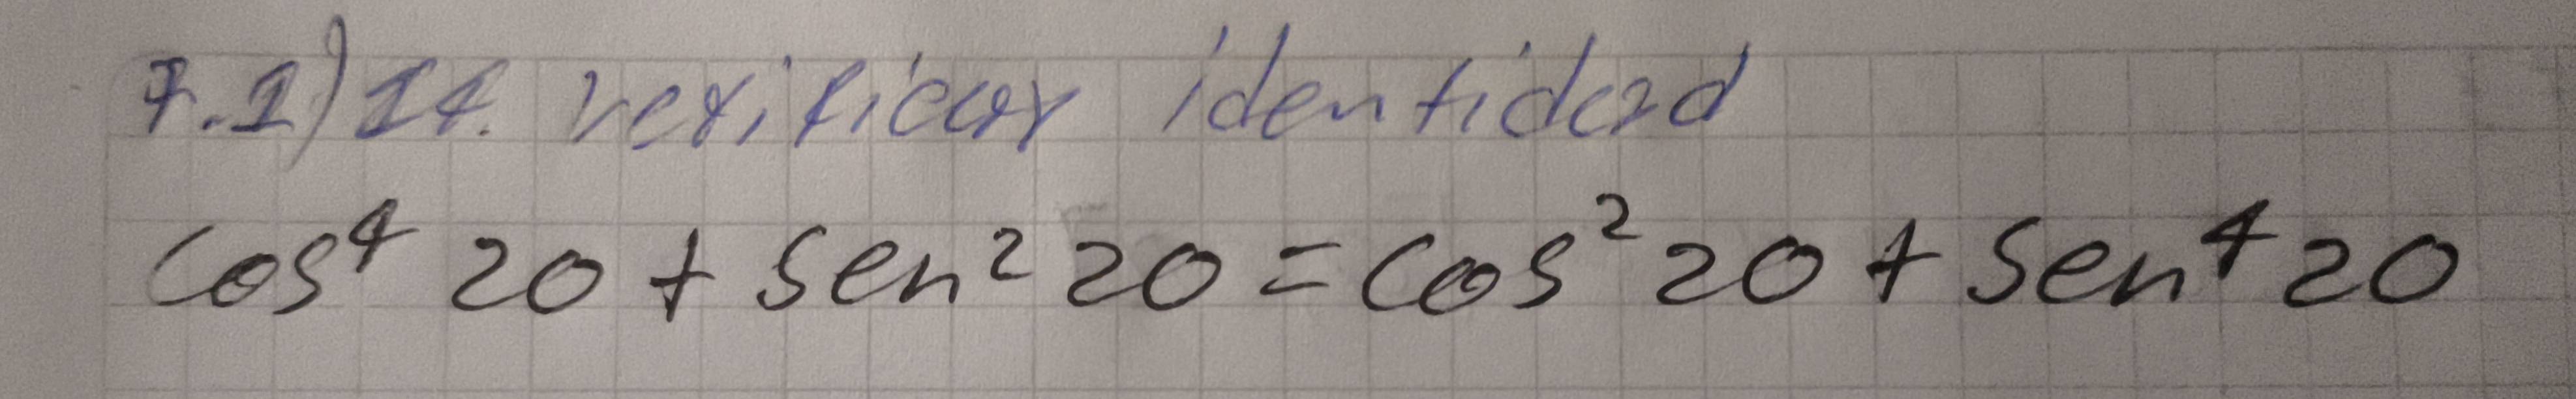 7.1) 14. verificar identidad
cos⁴ 20 + sen² 20 = cos² 20 + sen⁴ 20